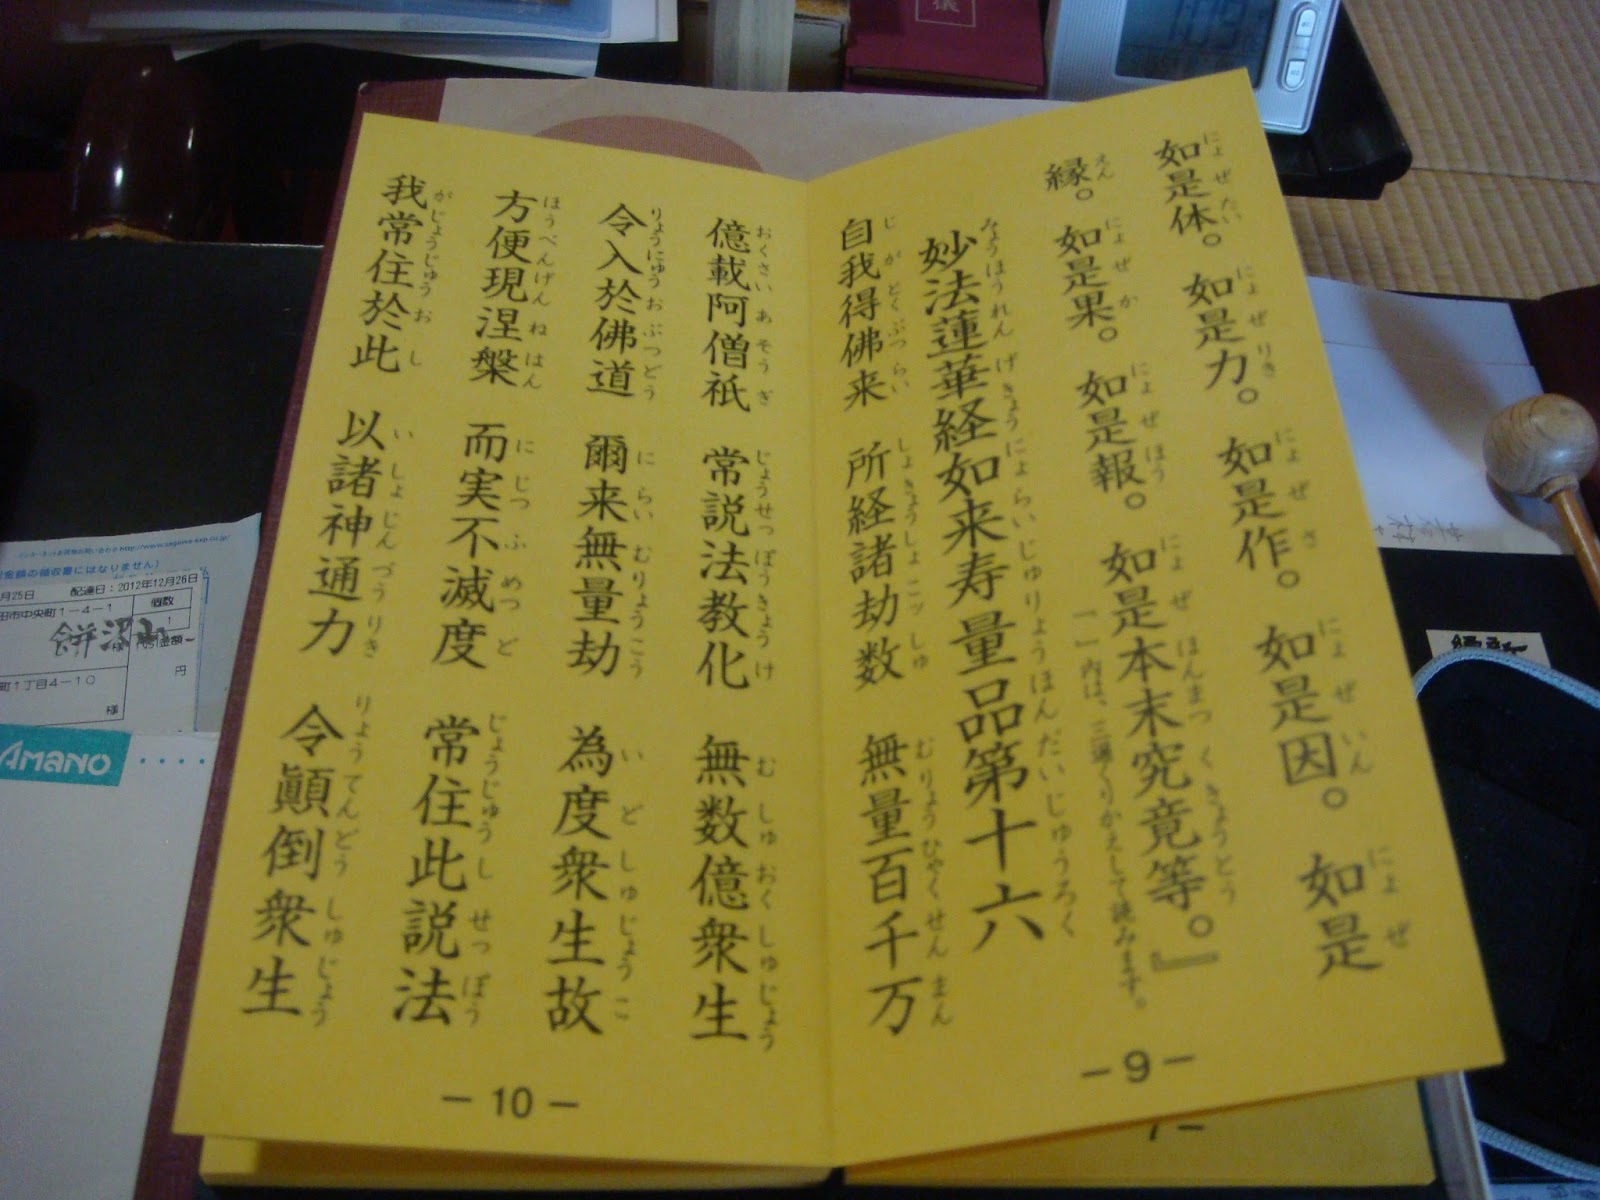 如是体。如是力。如是作。如是因。如是
にょぜたい にょぜりき にょぜさ にょぜいん にょぜ
縁。如是果。如是報。如是本末究竟等。』
えん にょぜか にょぜほう にょぜほんまつくきょうとう
「」内は、三遍くりかえして読みます。
妙法蓮華経如来寿量品第十六
みょうほうれんげきょうにょらいじゅりょうほんだいじゅうろく
自我得佛来 所経諸劫数 無量百千万
じがとくぶつらい しょきょうしょこッしゅ むりょうひゃくせんまん
-9-
億載阿僧祇 常説法教化 無数億衆生
おくさいあそうぎ じょうせっぽうきょうけ むしゅおくしゅじょう
令入於佛道 爾来無量劫 為度衆生故
りょうにゅうおぶつどう にらいむりょうこう いどしゅじょうこ
方便現涅槃 而実不滅度 常住此説法
ほうべんげんねはん にじつふめつど じょうじゅうしせっぽう
我常住於此 以諸神通力 令顛倒衆生
がじょうじゅうおし いしょじんづうりき りょうてんどうしゅじょう
-10-
金額の領収書にはなりません)
月25日 配達日:2012年12月26日
田市中央町1-4-1 個数
1
様
円
町1丁目4-10
様
AMANO